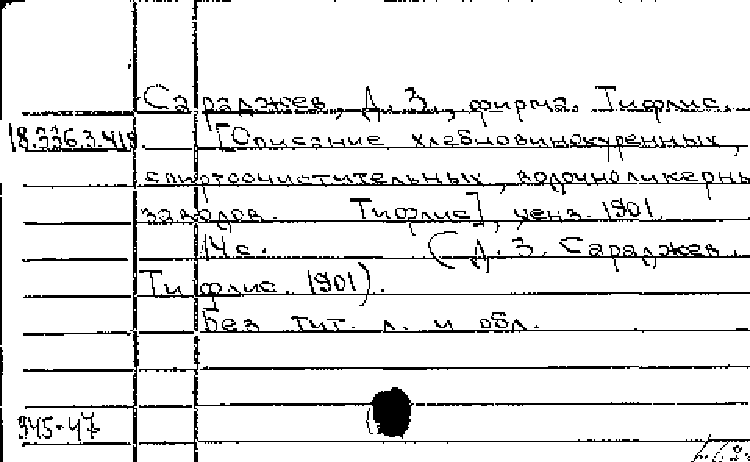 Сараджев, Д. З., фирма. Тифлис.
18.226.3.418. [Описание хлебновинокуренных,
спиртоочистительных, водочноликерны
заводов. Тифлис], ценз. 1901.
14 с. (Д. З. Сараджев.
Тифлис. 1901).
Без тит. л. и обл.
945-47